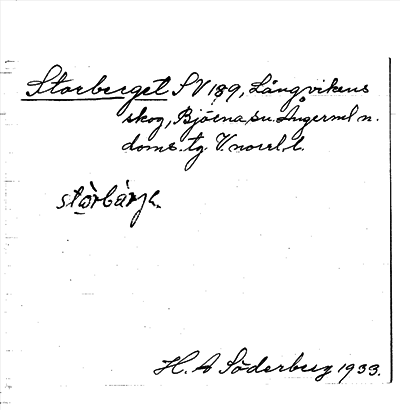 Storberget SV 189, Långvikens
skog, Björna sn. Ångerml n.
doms. tg. V. norrl. l.
stòrbárjе.
H. A Söderberg 1933.